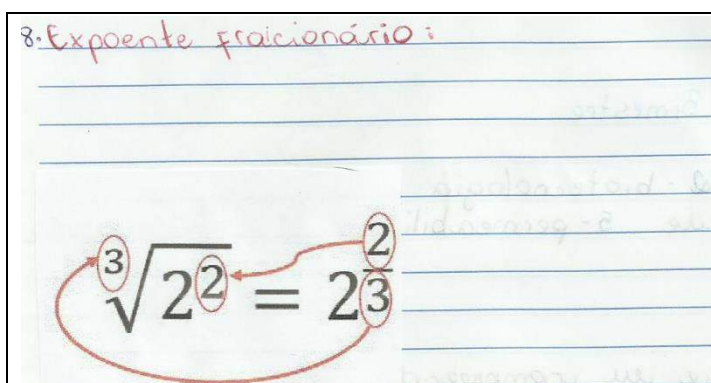 8. Expoente fraicionário:
∛2² = 2^(2/3)